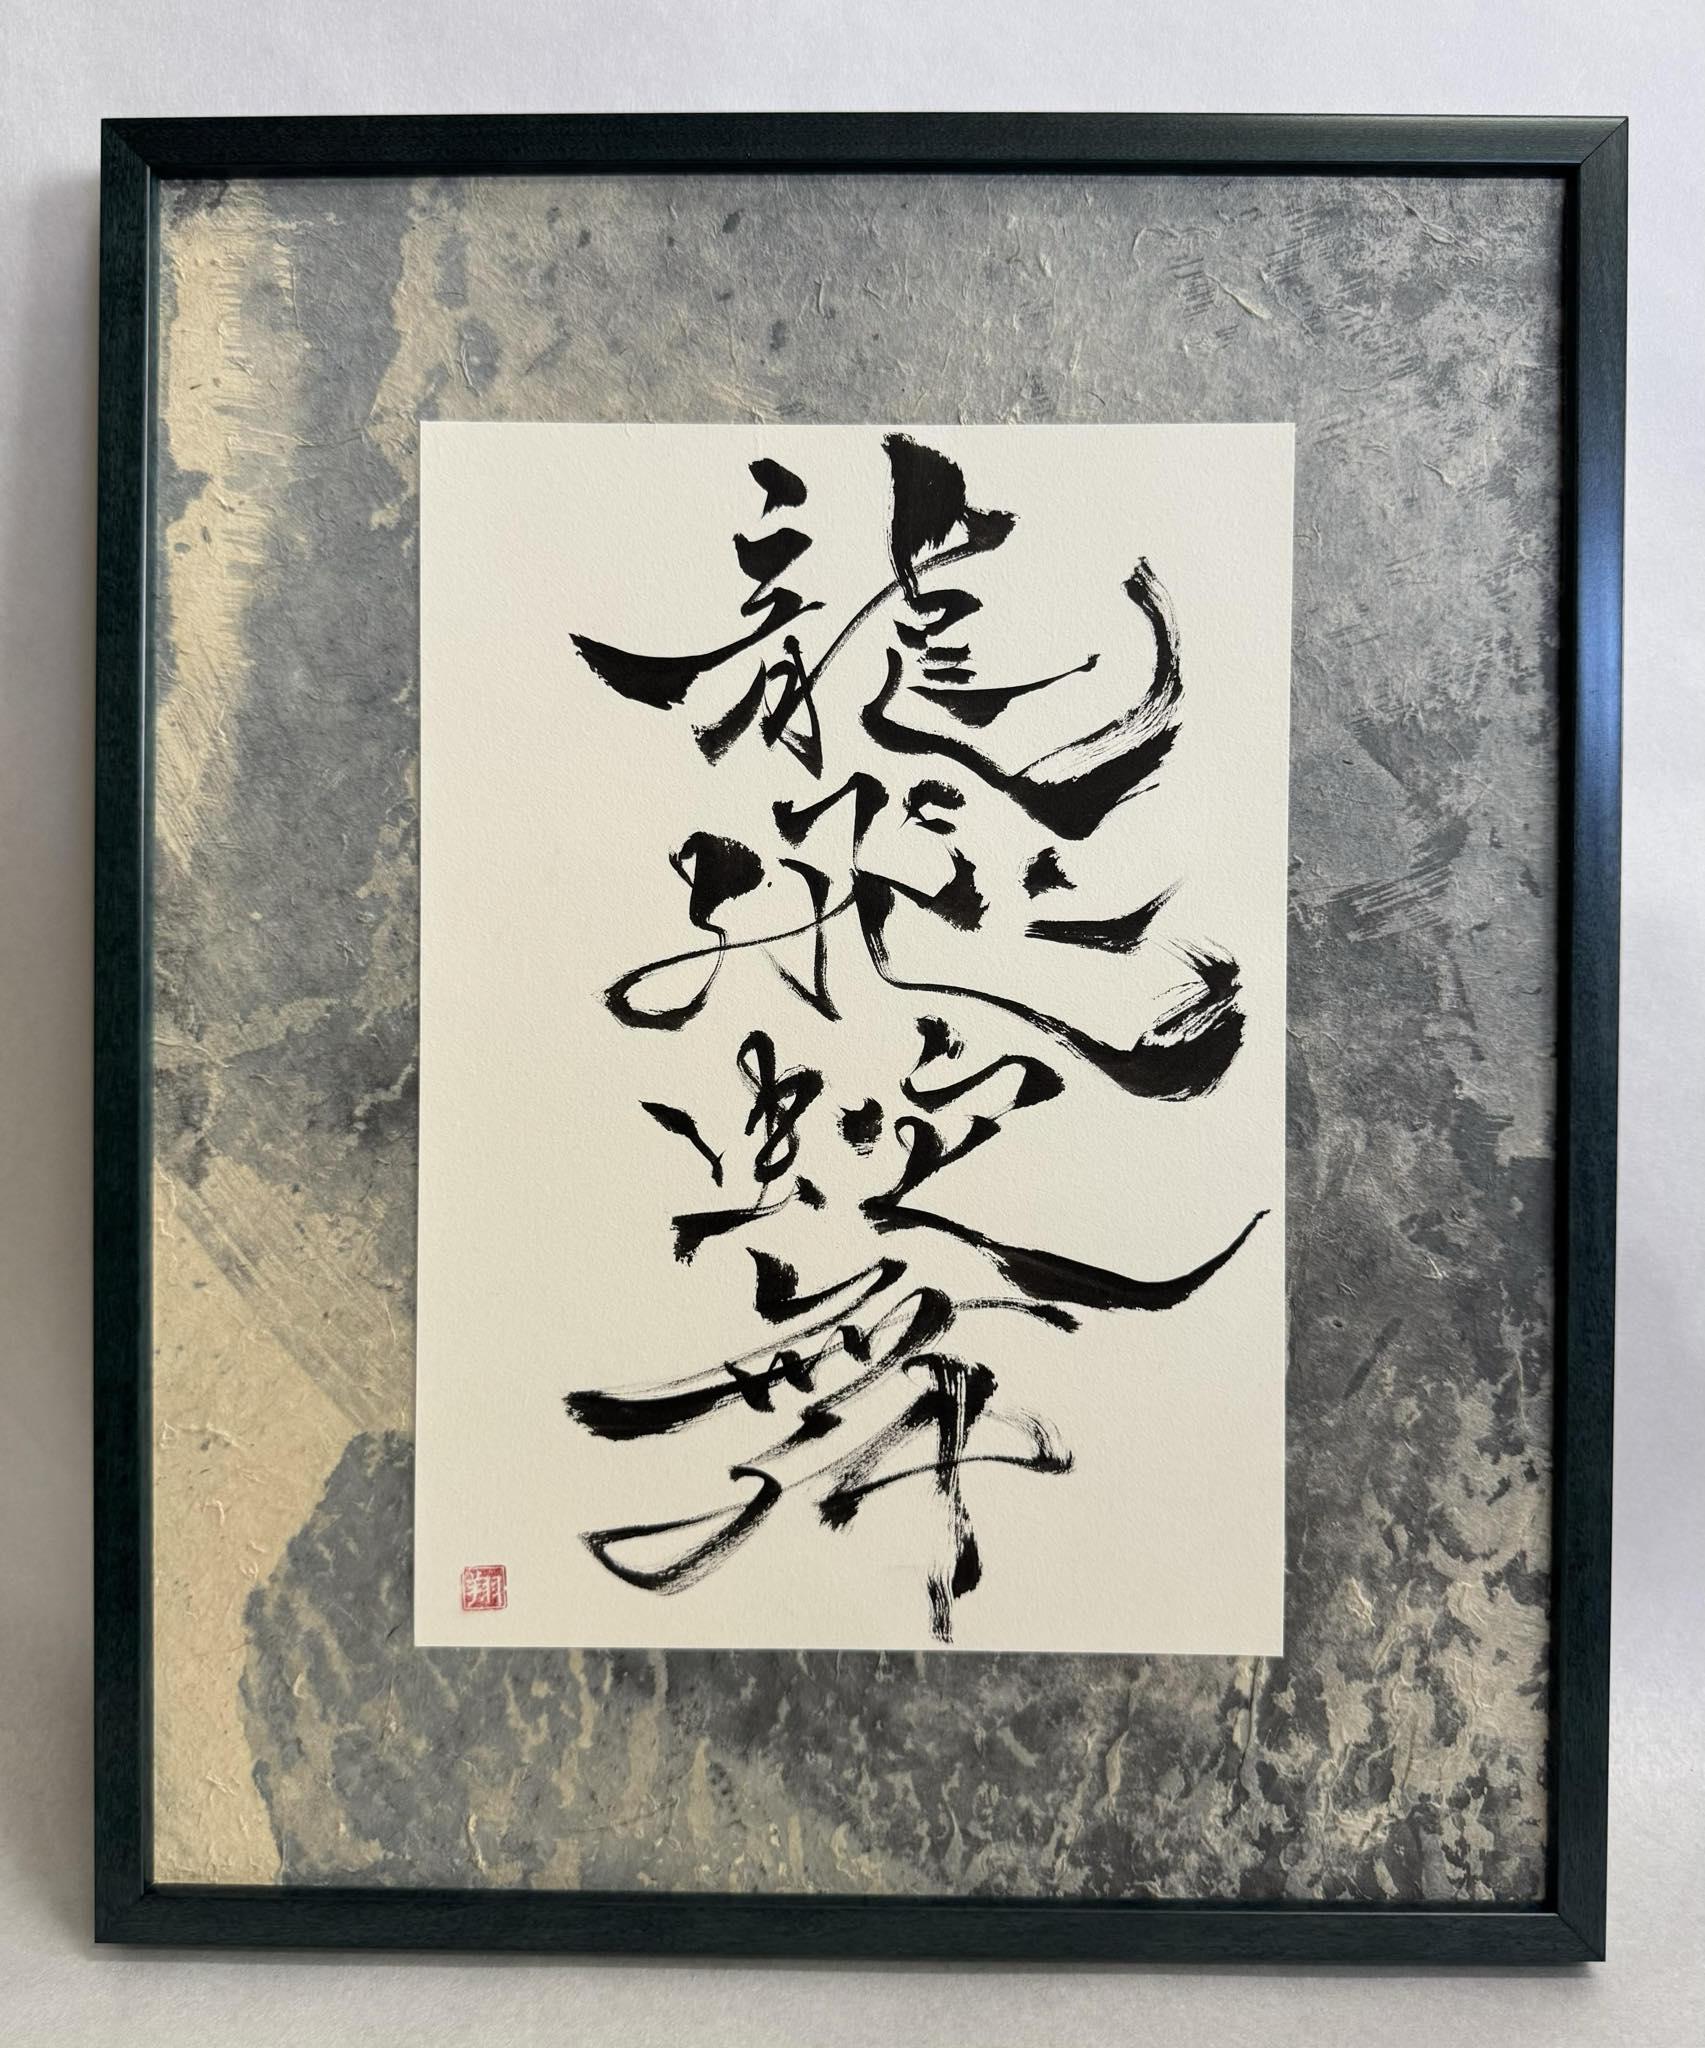 龍飛蛇舞
翔